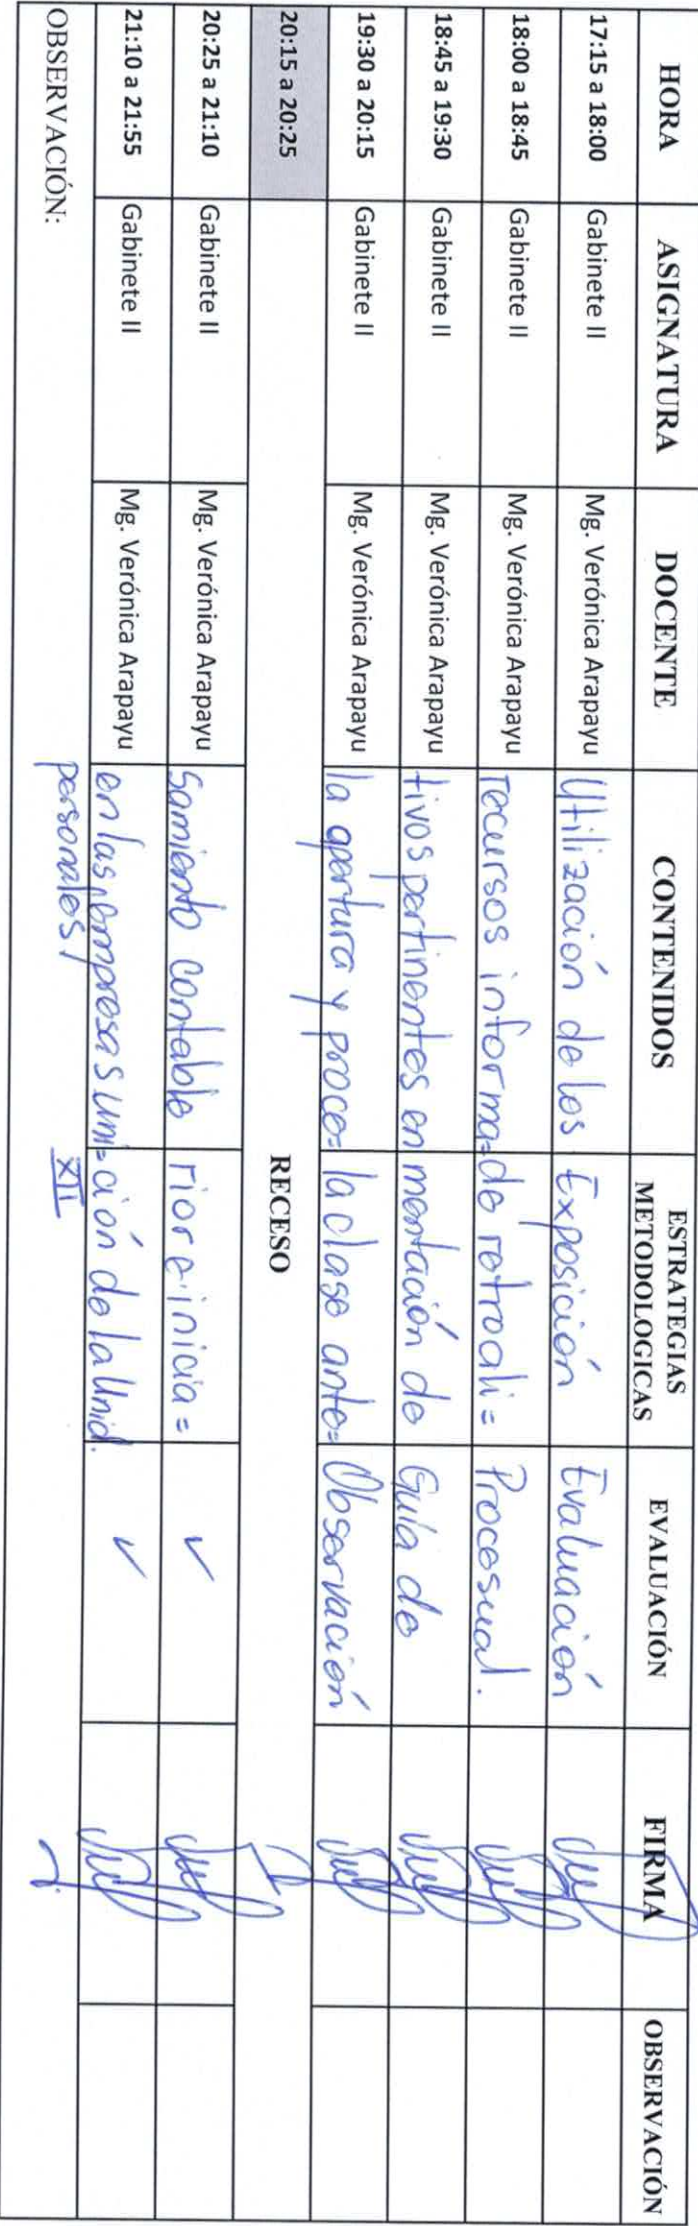 HORA ASIGNATURA DOCENTE CONTENIDOS ESTRATEGIAS METODOLOGICAS EVALUACIÓN FIRMA OBSERVACIÓN
17:15 a 18:00 Gabinete II Mg. Verónica Arapayu Utilización de los Exposición Evaluación
18:00 a 18:45 Gabinete II Mg. Verónica Arapayu recursos informa= de retroali= Procesual.
18:45 a 19:30 Gabinete II Mg. Verónica Arapayu tivos pertinentes en mentación de Guía de
19:30 a 20:15 Gabinete II Mg. Verónica Arapayu la apertura y proce= la clase ante= Observación
20:15 a 20:25 RECESO
20:25 a 21:10 Gabinete II Mg. Verónica Arapayu samiento contable rior e inicia= ✓
21:10 a 21:55 Gabinete II Mg. Verónica Arapayu en las empresas uni= ción de la Unid. ✓
OBSERVACIÓN: personales/ XII